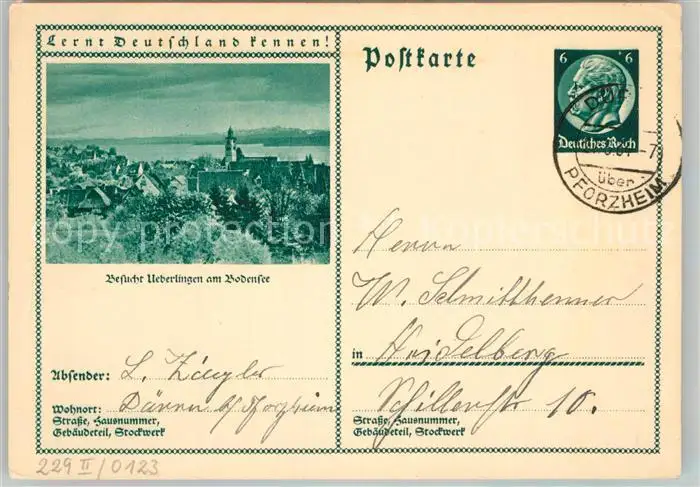 Lernt Deutschland kennen!
Postkarte
6 6
Deutsches Reich
über
PFORZHEIM
Besucht Ueberlingen am Bodensee
Herrn
W. Schmitthenner
in Heidelberg
Schillerstr 10.
Absender: L. Ziegler
Wohnort: Dürrn b/ Pforzheim
Straße, Hausnummer,
Gebäudeteil, Stockwerk
Straße, Hausnummer,
Gebäudeteil, Stockwerk
229 II / 0123